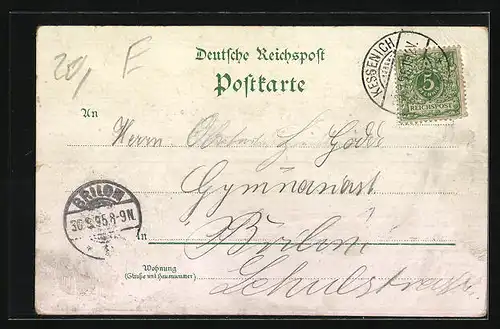 20/ E
Deutsche Reichspost
Postkarte
KESSENICH
5
REICHSPOST
An
Herrn
Gymnasiast
BRILON
30.9.95.8-9N.
In Brilon
Wohnung
(Straße und Hausnummer)
Schulstrasse